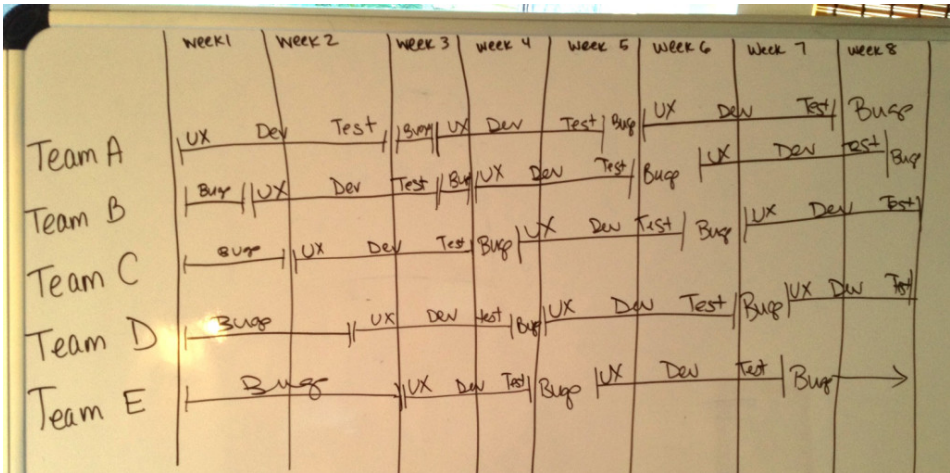 Week 1 Week 2 Week 3 Week 4 Week 5 Week 6 Week 7 Week 8
Team A UX Dev Test Bugs UX Dev Test Bugs UX Dev Test Bugs
Team B Bugs UX Dev Test Bugs UX Dev Test Bugs UX Dev Test Bugs
Team C Bugs UX Dev Test Bugs UX Dev Test Bugs UX Dev Test
Team D Bugs UX Dev Test Bugs UX Dev Test Bugs UX Dev Test
Team E Bugs UX Dev Test Bugs UX Dev Test Bugs